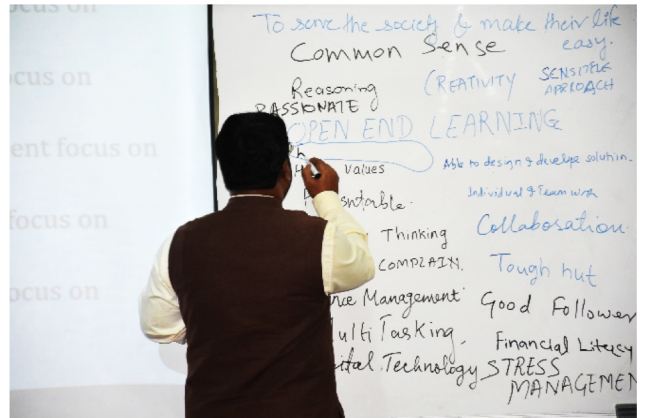 ocus on
ocus on
ent focus on
focus on
ocus on
To serve the society & make their life
easy.
Common Sense
Reasoning
CREATIVITY
SENSITIVE
APPROACH
PASSIONATE
OPEN END LEARNING
Values
Able to design & develope solution.
Individual & Team work
Thinking
Collaboration
COMPLAIN.
Tough nut
Management
Good Follower
Multi Tasking.
Financial Literacy
Technology
STRESS
MANAGEMEN